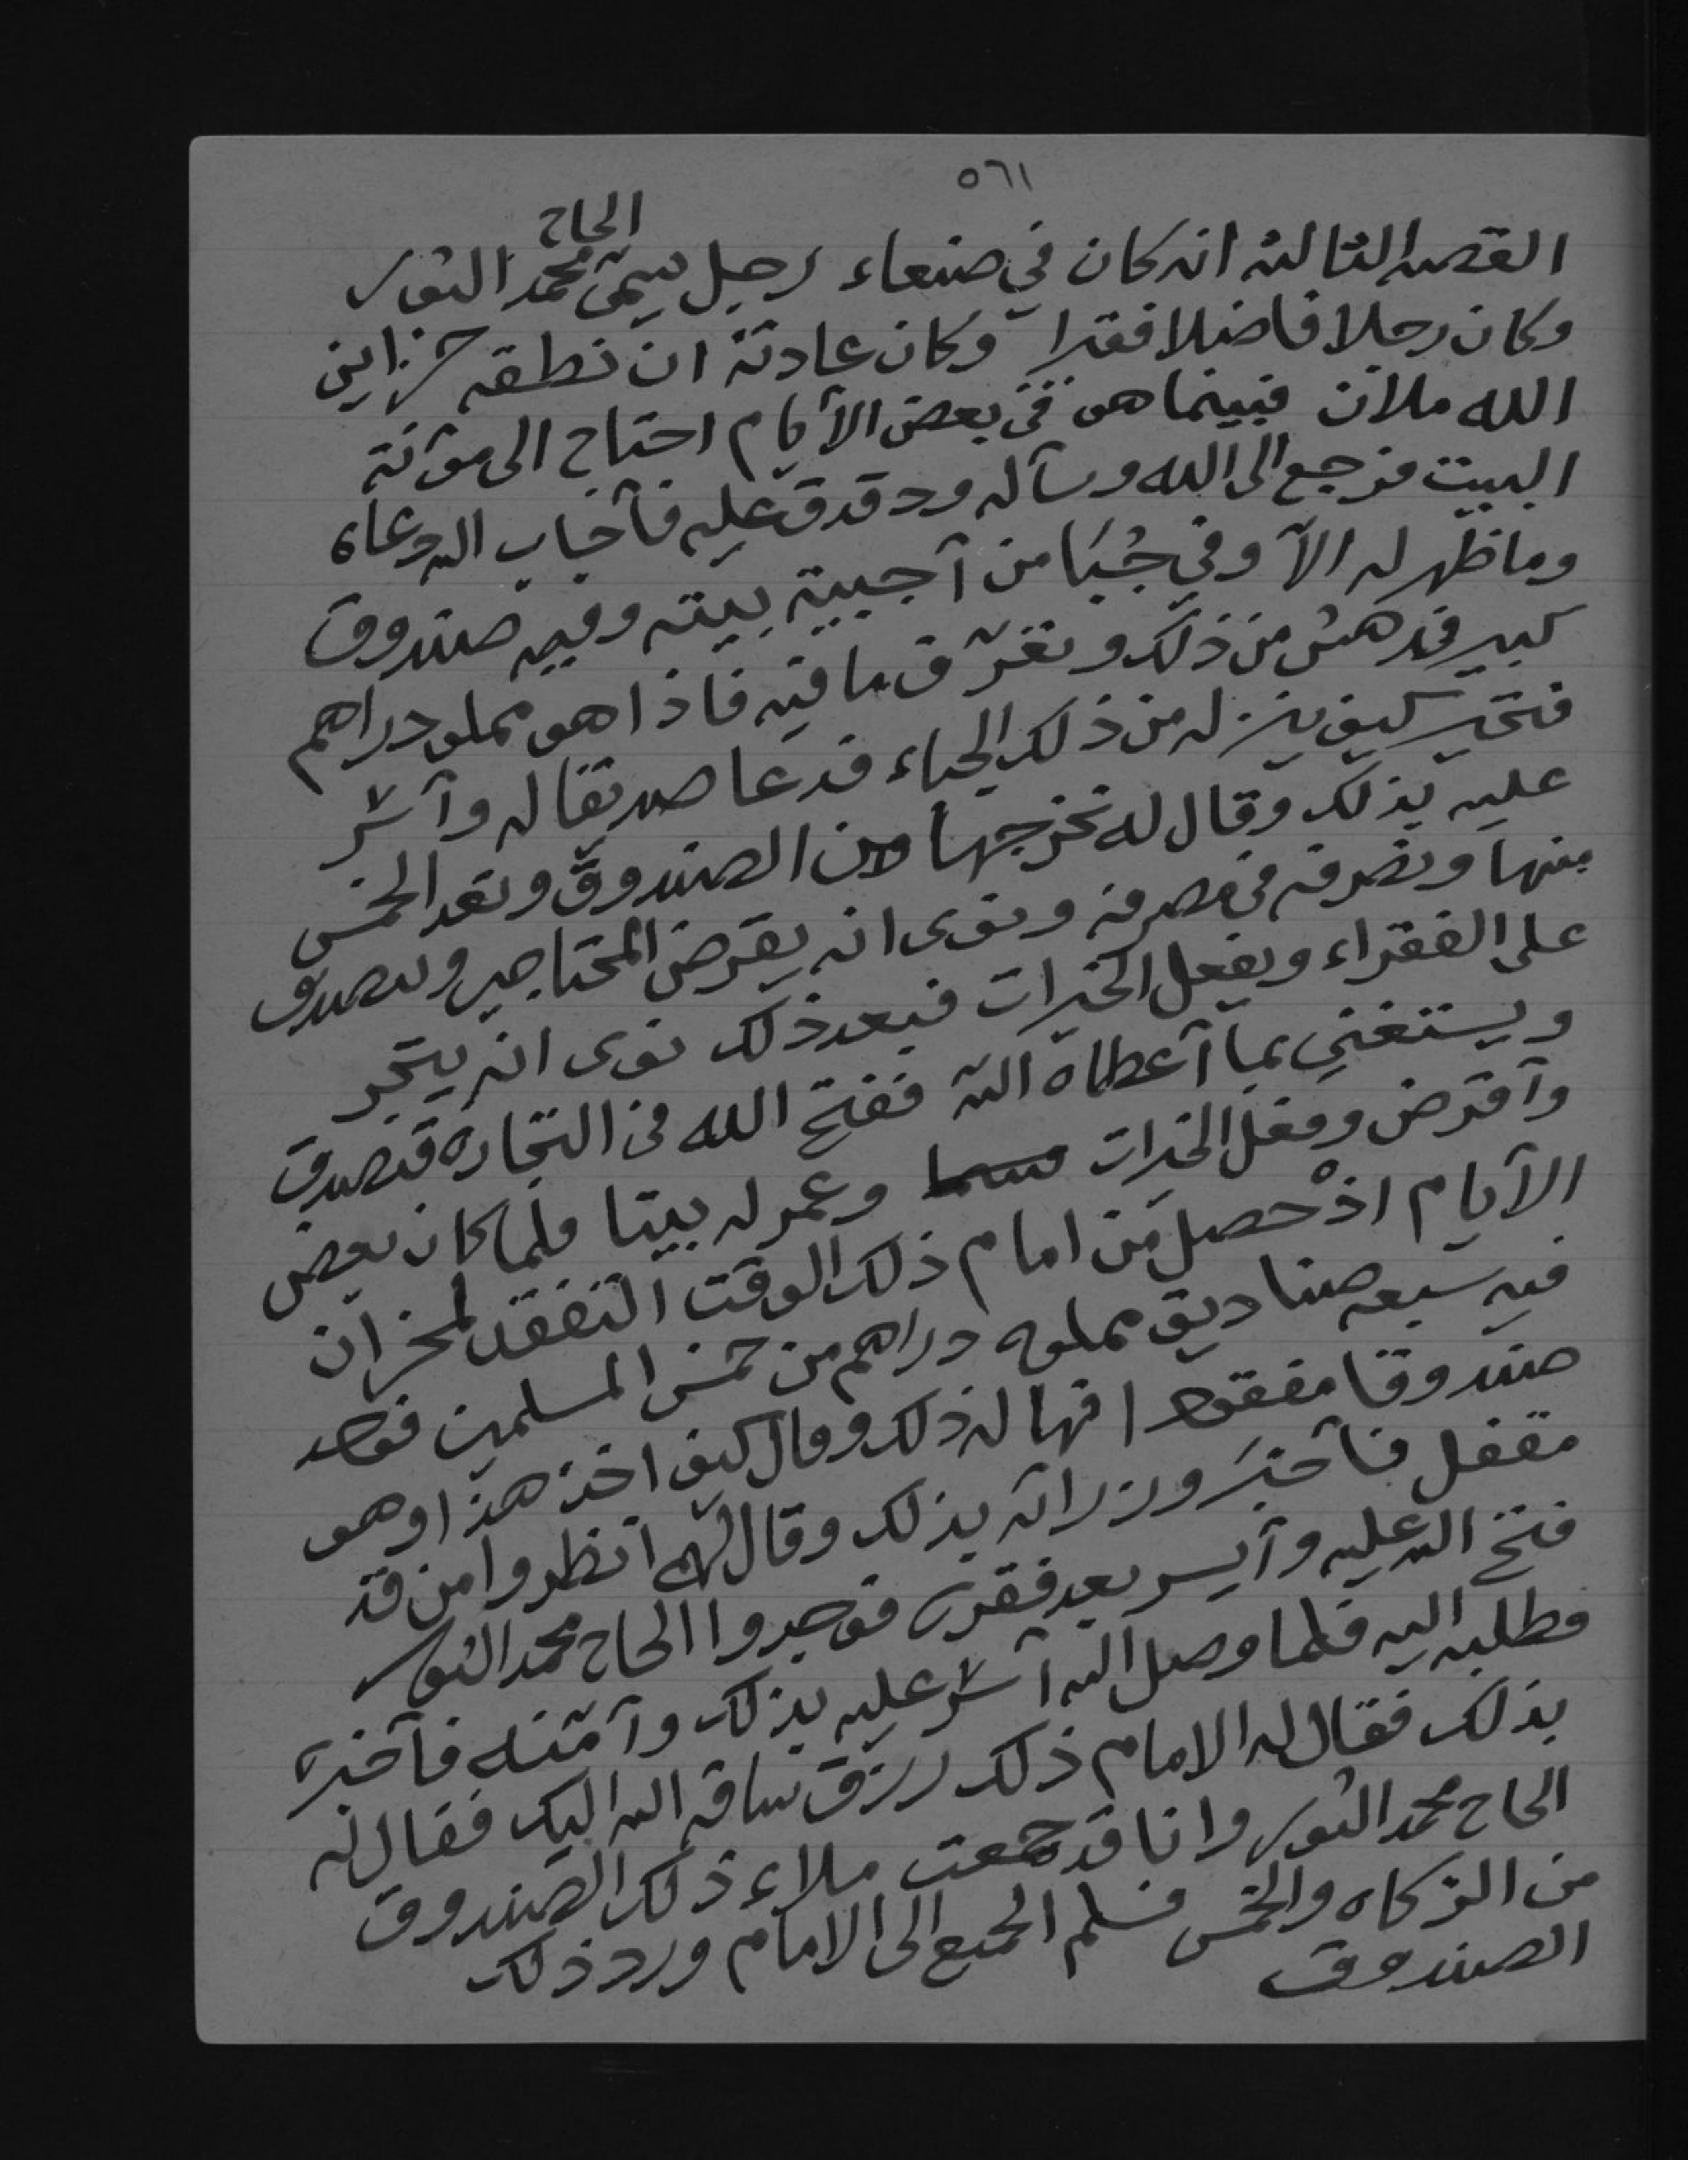 ٥٦١
الحاج
القصه الثالثه انه كان في صنعاء رجل يسمى محمد الثور
وكان رجلا فاضلا فقيرا وكان عادته ان نطقه خزاين
الله ملآن فبينما هو في بعض الأيام احتاج الى مؤنة
البيت فرجع الى الله وسأله ودقدق عليه فأجاب الله دعاه
وما ظهر له الآ وفي جُبَا من آجبية بيته وفيه صندوق
كبير فدهش من ذلك وتفرّق ما فيه فاذا هو مملو دراهم
فتحير كيف ينزله من ذلك الجباء فدعا صديقا له وآسّر
عليه بذلك وقال له نخرجها من الصندوق ونعد الخمس
منها ونصرفه في مصرفه ونوى انه يقرض المحتاجين ويتصدق
على الفقراء ويفعل الخيرات فبعد ذلك نوى انه يتجر
ويستغني بما آعطاه الله ففتح الله في التجاره فتصدق
وآقرض وفعل الخيرات وعمر له بيتا فلما كان بعض
الآيام اذْ حصل من امام ذلك الوقت التفقد لمخزان
فيه سبعه صناديق مملوه دراهم من خمس المسلمين فوجد
صندوقا مفقودا فهاله ذلك وقال كيف اخذ هذا وهو
مقفل فآخبرَ وزرائه بذلك وقال لهم انظروا من قد
فتح الله عليه وآيسر بعد فقره فوجدوا الحاج محمد الثور
فطلبه اليه فلما وصل اليه آسّر عليه بذلك وآمّنه فآخبره
بذلك فقال له الامام ذلك رزق ساقه الله اليك فقال له
الحاج محمد الثور وانا قد جمعت ملاء ذلك الصندوق
من الزكاه والخمس فسلم الجميع الى الامام ورد ذلك
الصندوق